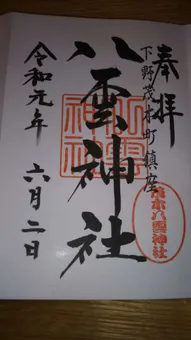 奉拝
下野茂木町鎮座
八雲神社
令和元年 六月二日
茂木八雲神社